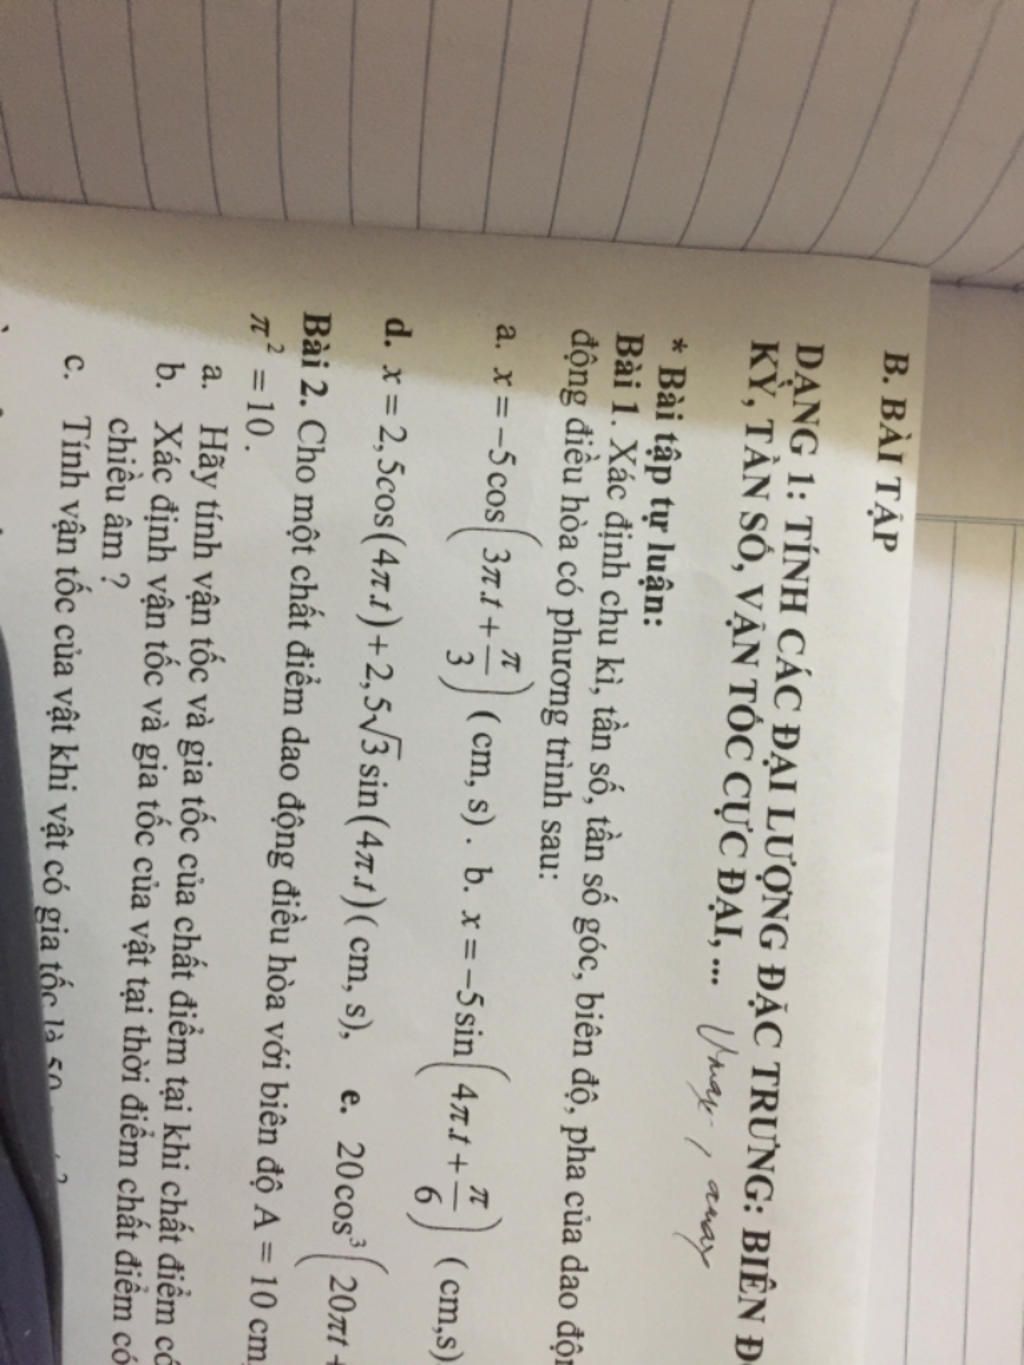 B. BÀI TẬP
DẠNG 1: TÍNH CÁC ĐẠI LƯỢNG ĐẶC TRƯNG: BIÊN
KỲ, TẦN SỐ, VẬN TỐC CỰC ĐẠI,... Vmax, amax
* Bài tập tự luận:
Bài 1. Xác định chu kì, tần số, tần số góc, biên độ, pha của dao
động điều hòa có phương trình sau:
a. x = -5cos(3π.t + π/3) (cm, s). b. x = -5sin(4π.t + π/6) (cm,s)
d. x = 2,5cos(4π.t) + 2,5√3 sin(4π.t)(cm, s), e. 20cos³(20πt +
Bài 2. Cho một chất điểm dao động điều hòa với biên độ A = 10 cm,
π² = 10.
a. Hãy tính vận tốc và gia tốc của chất điểm tại khi chất điểm có
b. Xác định vận tốc và gia tốc của vật tại thời điểm chất điểm có
chiều âm ?
c. Tính vận tốc của vật khi vật có gia tốc là 50